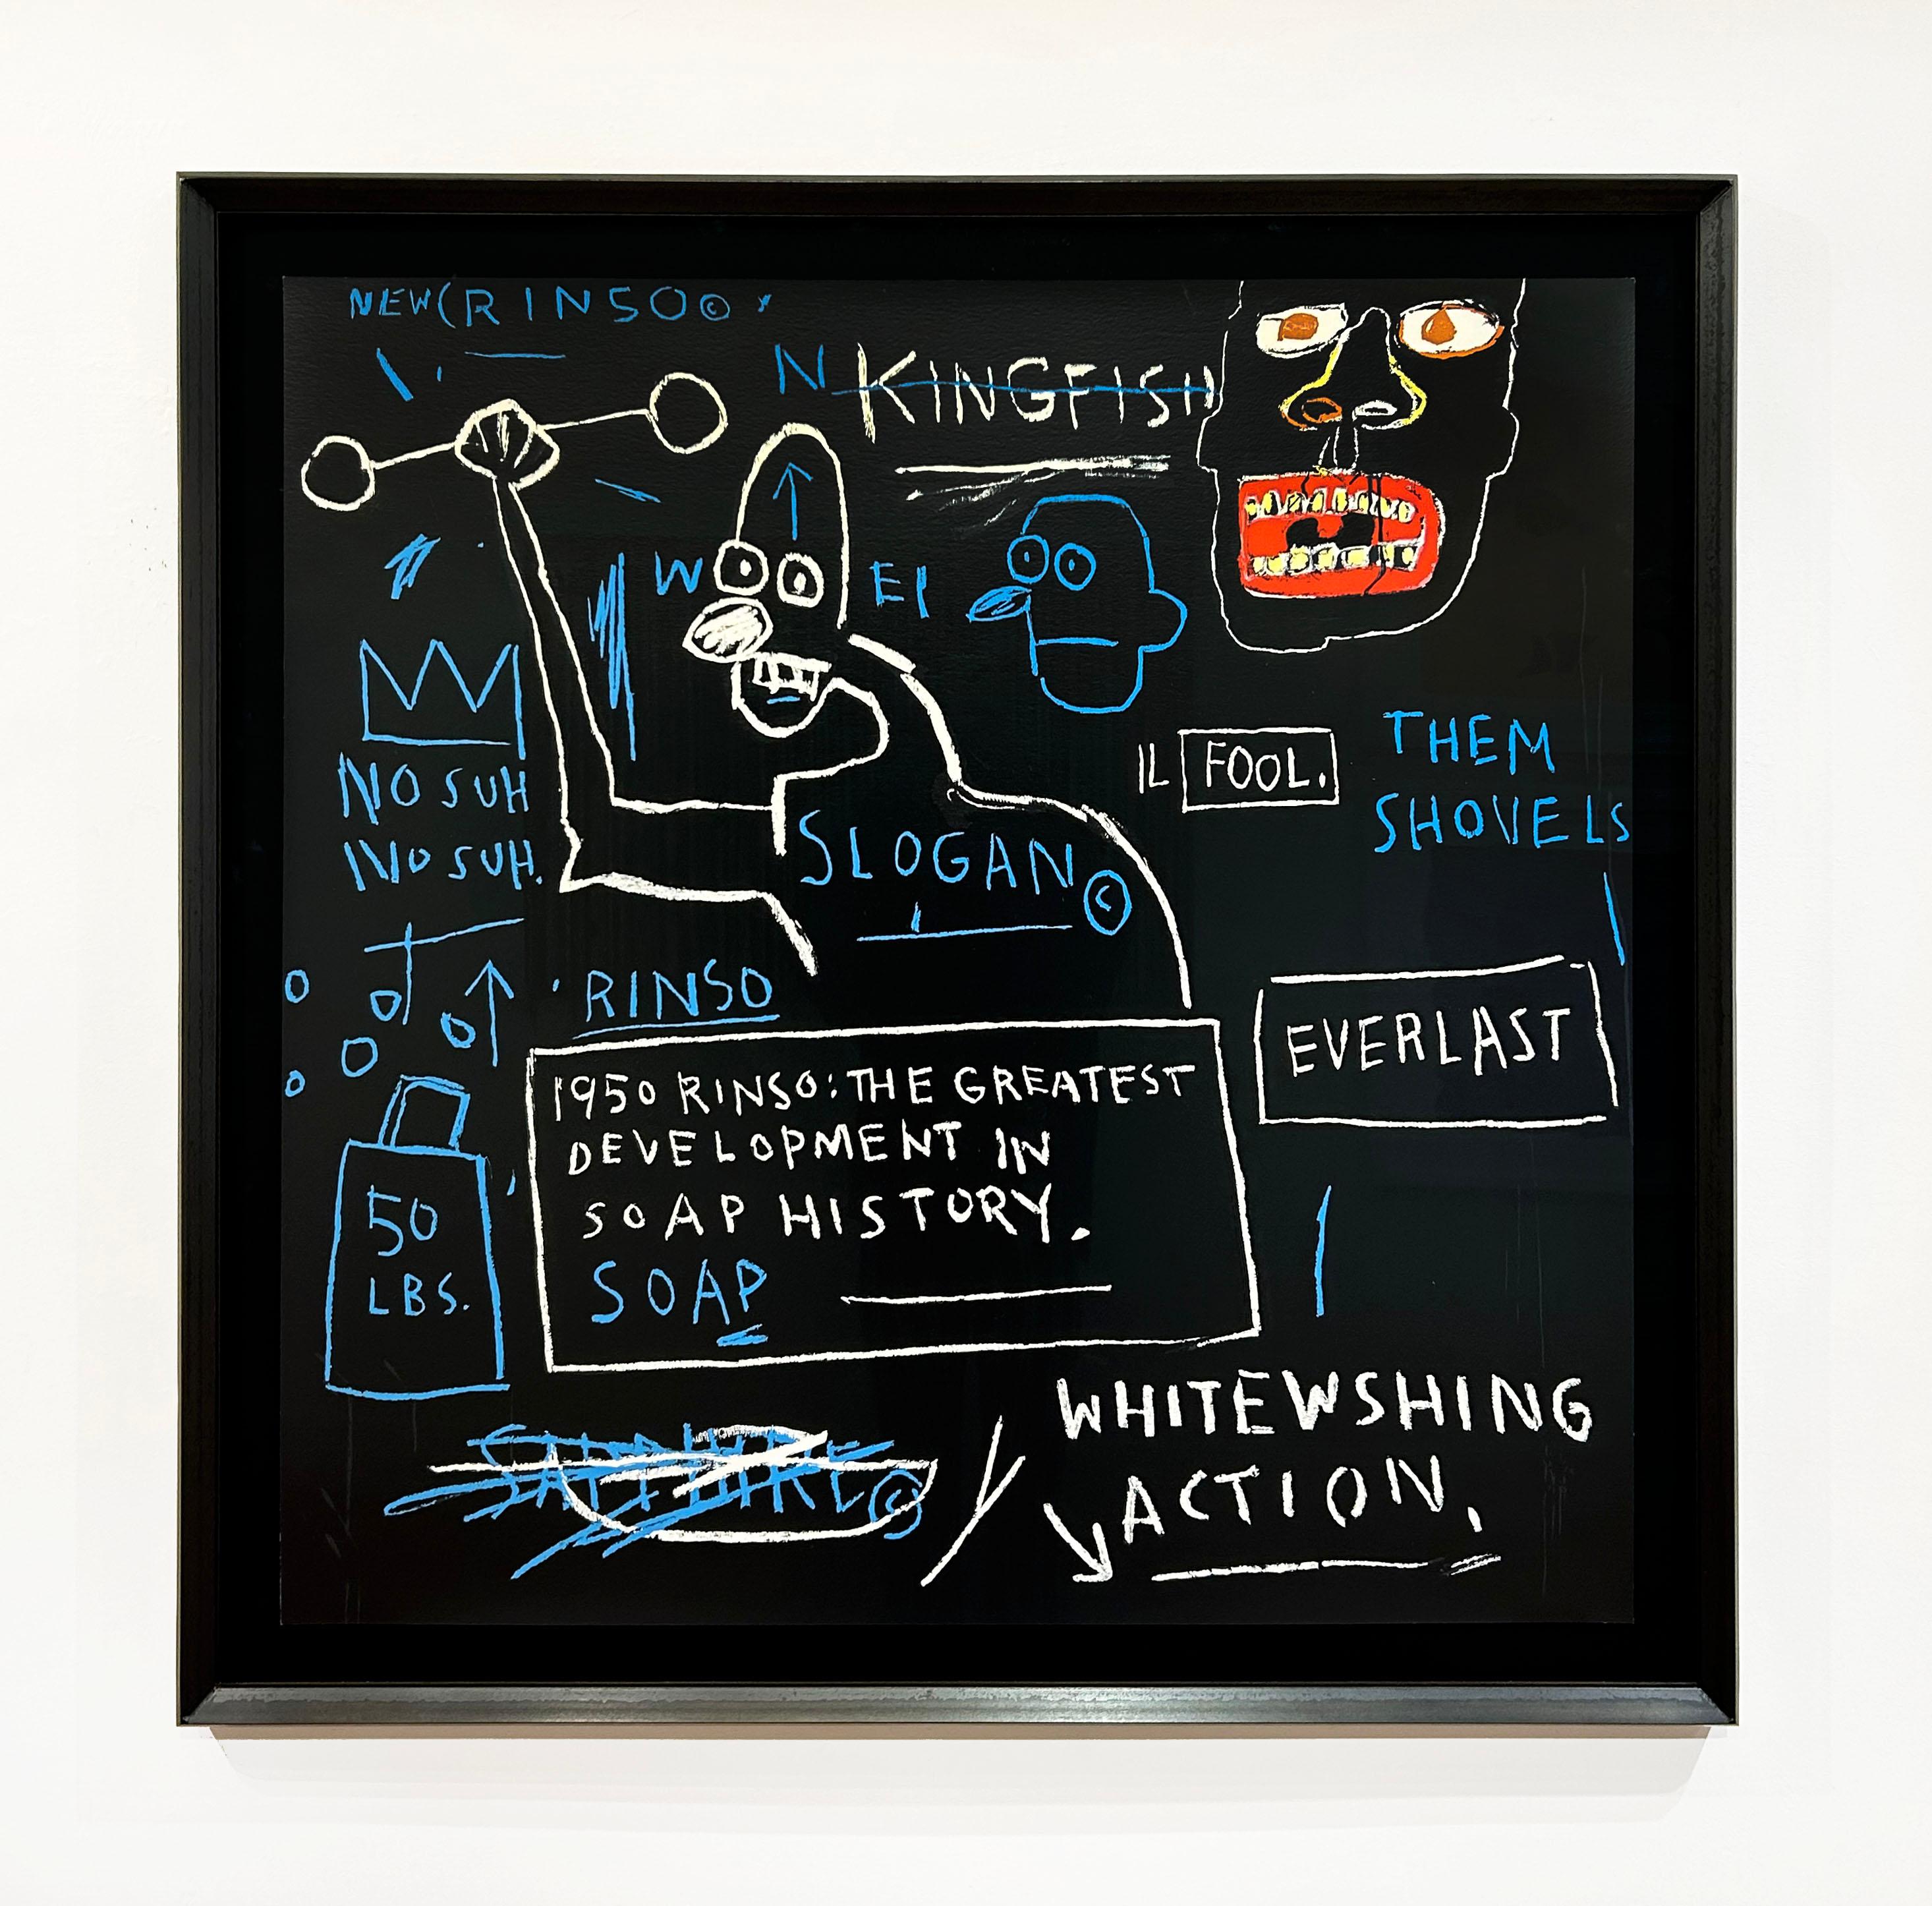 NEW(RINSO©
N KINGFISH
W EI
NO SUH
NO SUH.
IL FOOL.
THEM
SHOVELS
SLOGAN©
RINSO
EVERLAST
1950 RINSO: THE GREATEST
DEVELOPMENT IN
SOAP HISTORY.
SOAP
50
LBS.
WHITEWSHING
ACTION.